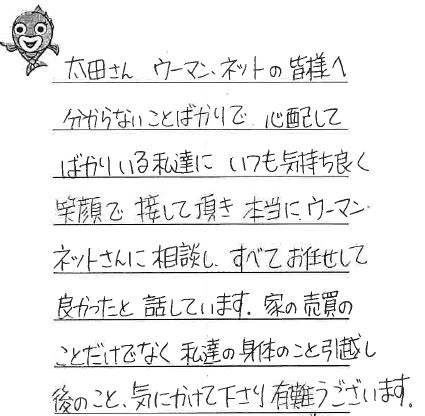 太田さん ウーマン、ネットの皆様へ
分からないことばかりで 心配して
ばかりいる私達に いつも気持ち良く
笑顔で 接して頂き 本当に、ウーマン
ネットさんに 相談し、すべてお任せして
良かったと 話しています。家の売買の
ことだけでなく 私達の身体のこと引越し
後のこと、気にかけて下さり 有難うございます。